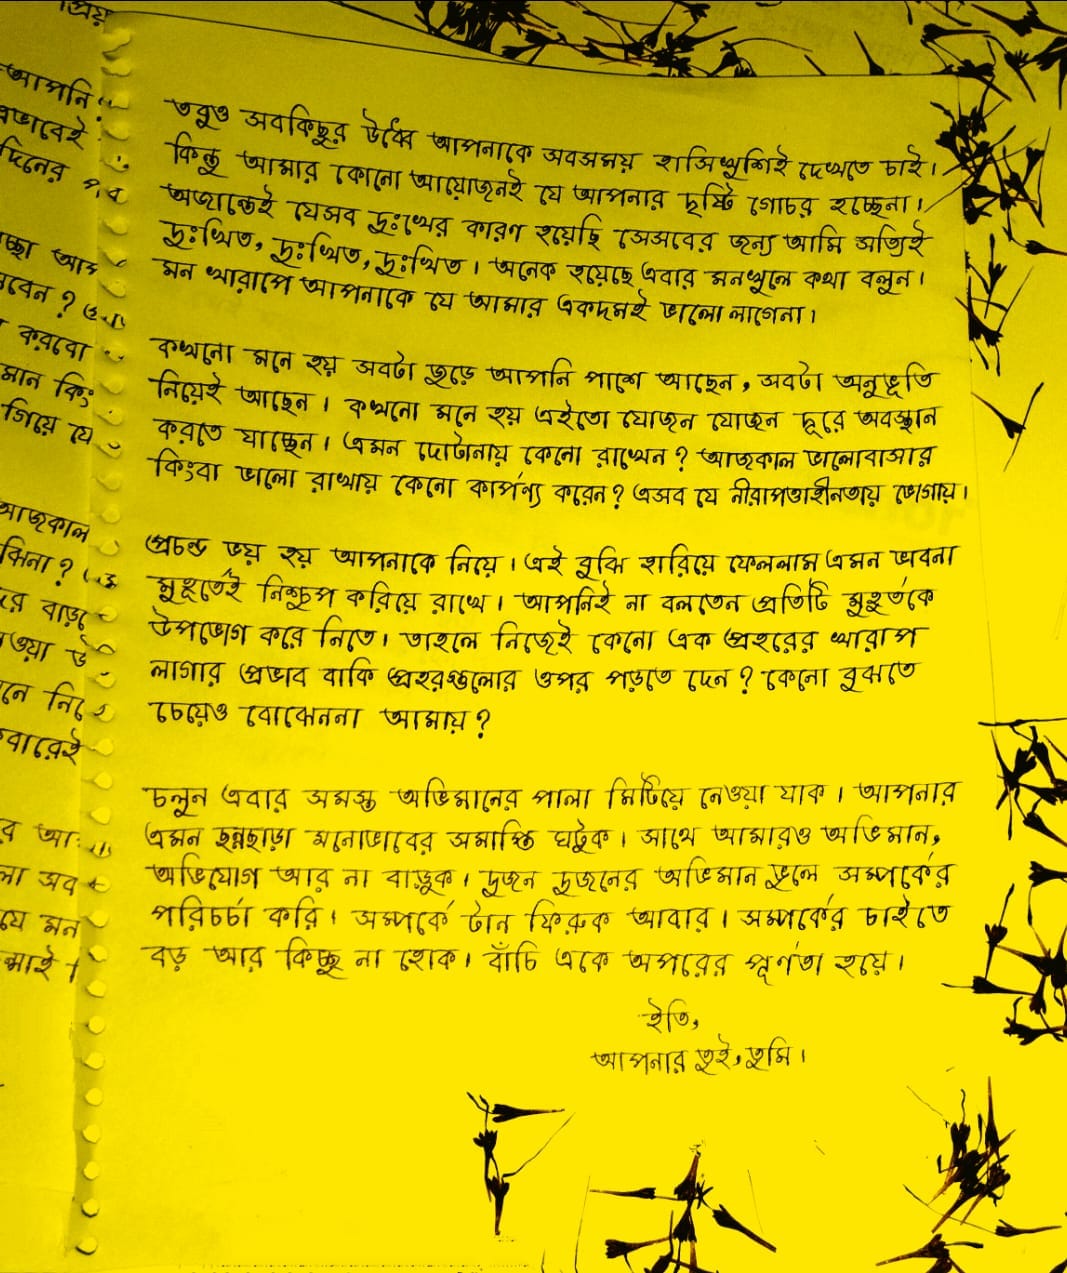 প্রিয়
আপনি
এভাবেই
দিনের পর
চ্ছা আপ
বেন ?
করবো
মান কিং
গিয়ে যে
আজকাল
ঝিনা ?
ওয়া উ
নে নি
বারেই
র আ
লা সব
যে মন
তবুও সবকিছুর উর্ধ্বে আপনাকে সবসময় হাসিখুশিই দেখতে চাই।
কিন্তু আমার কোনো আয়োজনই যে আপনার দৃষ্টি গোচর হচ্ছেনা।
অজান্তেই যেসব দুঃখের কারণ হয়েছি সেসবের জন্য আমি সত্যিই
দুঃখিত, দুঃখিত, দুঃখিত। অনেক হয়েছে এবার মনখুলে কথা বলুন।
মন খারাপে আপনাকে যে আমার একদমই ভালো লাগেনা।
কখনো মনে হয় সবটা জুড়ে আপনি পাশে আছেন, সবটা অনুভূতি
নিয়েই আছেন। কখনো মনে হয় এইতো যোজন যোজন দূরে অবস্থান
করতে যাচ্ছেন। এমন দোটানায় কেনো রাখেন? আজকাল ভালোবাসার
কিংবা ভালো রাখায় কেনো কার্পণ্য করেন? এসব যে নীরাপত্তাহীনতায় ভোগায়।
প্রচন্ড ভয় হয় আপনাকে নিয়ে। এই বুঝি হারিয়ে ফেললাম এমন ভাবনা
মুহূর্তেই নিশ্চুপ করিয়ে রাখে। আপনিই না বলতেন প্রতিটি মুহূর্তকে
উপভোগ করে নিতে। তাহলে নিজেই কেনো এক প্রহরের খারাপ
লাগার প্রভাব বাকি প্রহরগুলোর ওপর পড়তে দেন? কেনো বুঝতে
চেয়েও বোঝেননা আমায়?
চলুন এবার সমস্ত অভিমানের পালা মিটিয়ে নেওয়া যাক। আপনার
এমন ছন্নছাড়া মনোভাবের সমাপ্তি ঘটুক। সাথে আমারও অভিমান,
অভিযোগ আর না বাড়ুক। দুজন দুজনের অভিমান ভুলে সম্পর্কের
পরিচর্চা করি। সম্পর্কে টান ফিরুক আবার। সম্পর্কের চাইতে
বড় আর কিচ্ছু না হোক। বাঁচি একে অপরের পূর্ণতা হয়ে।
ইতি,
আপনার তুই, তুমি।